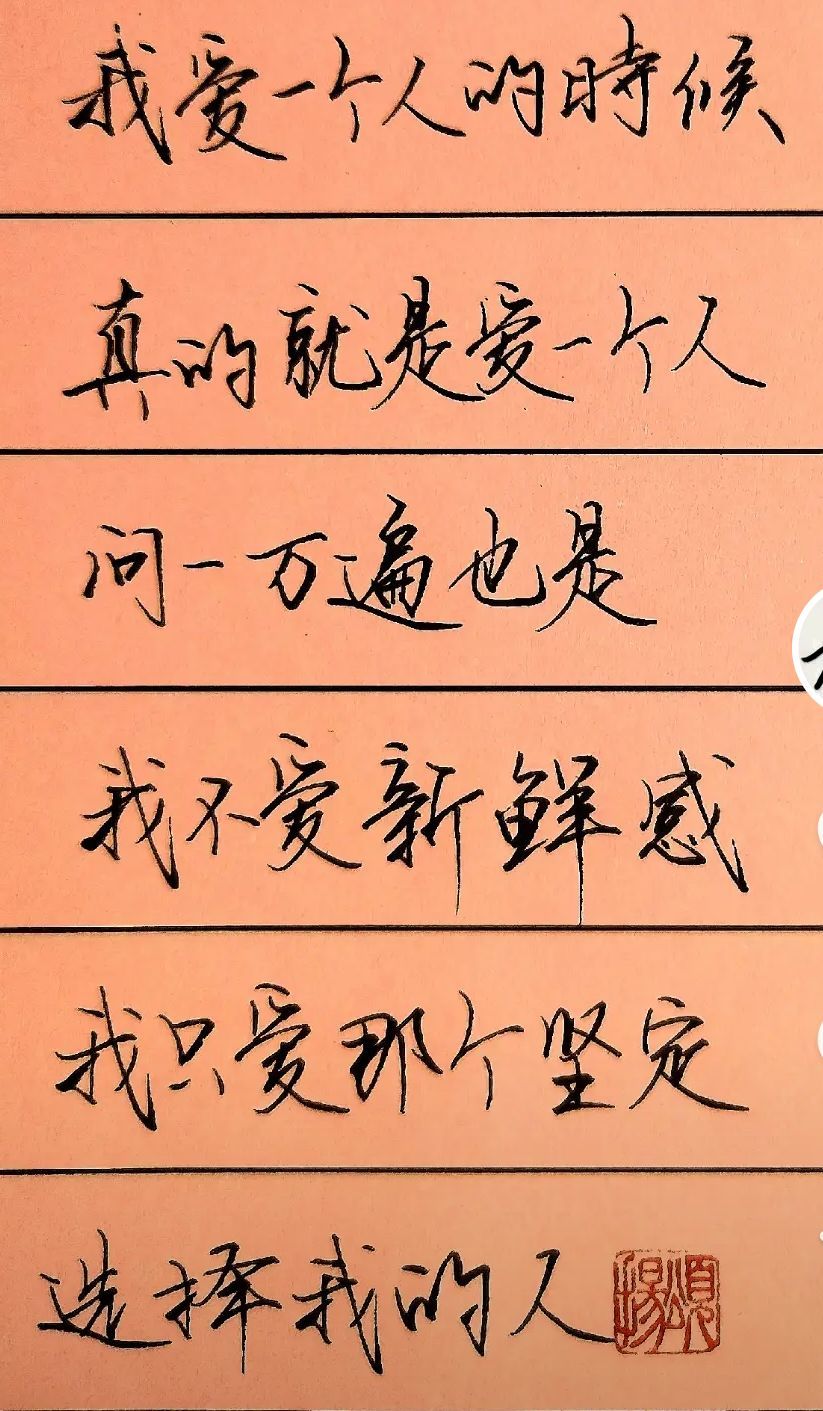 我爱一个人的時候
真的就是爱一个人
问一万遍也是
我不爱新鲜感
我只爱那个坚定
选择我的人